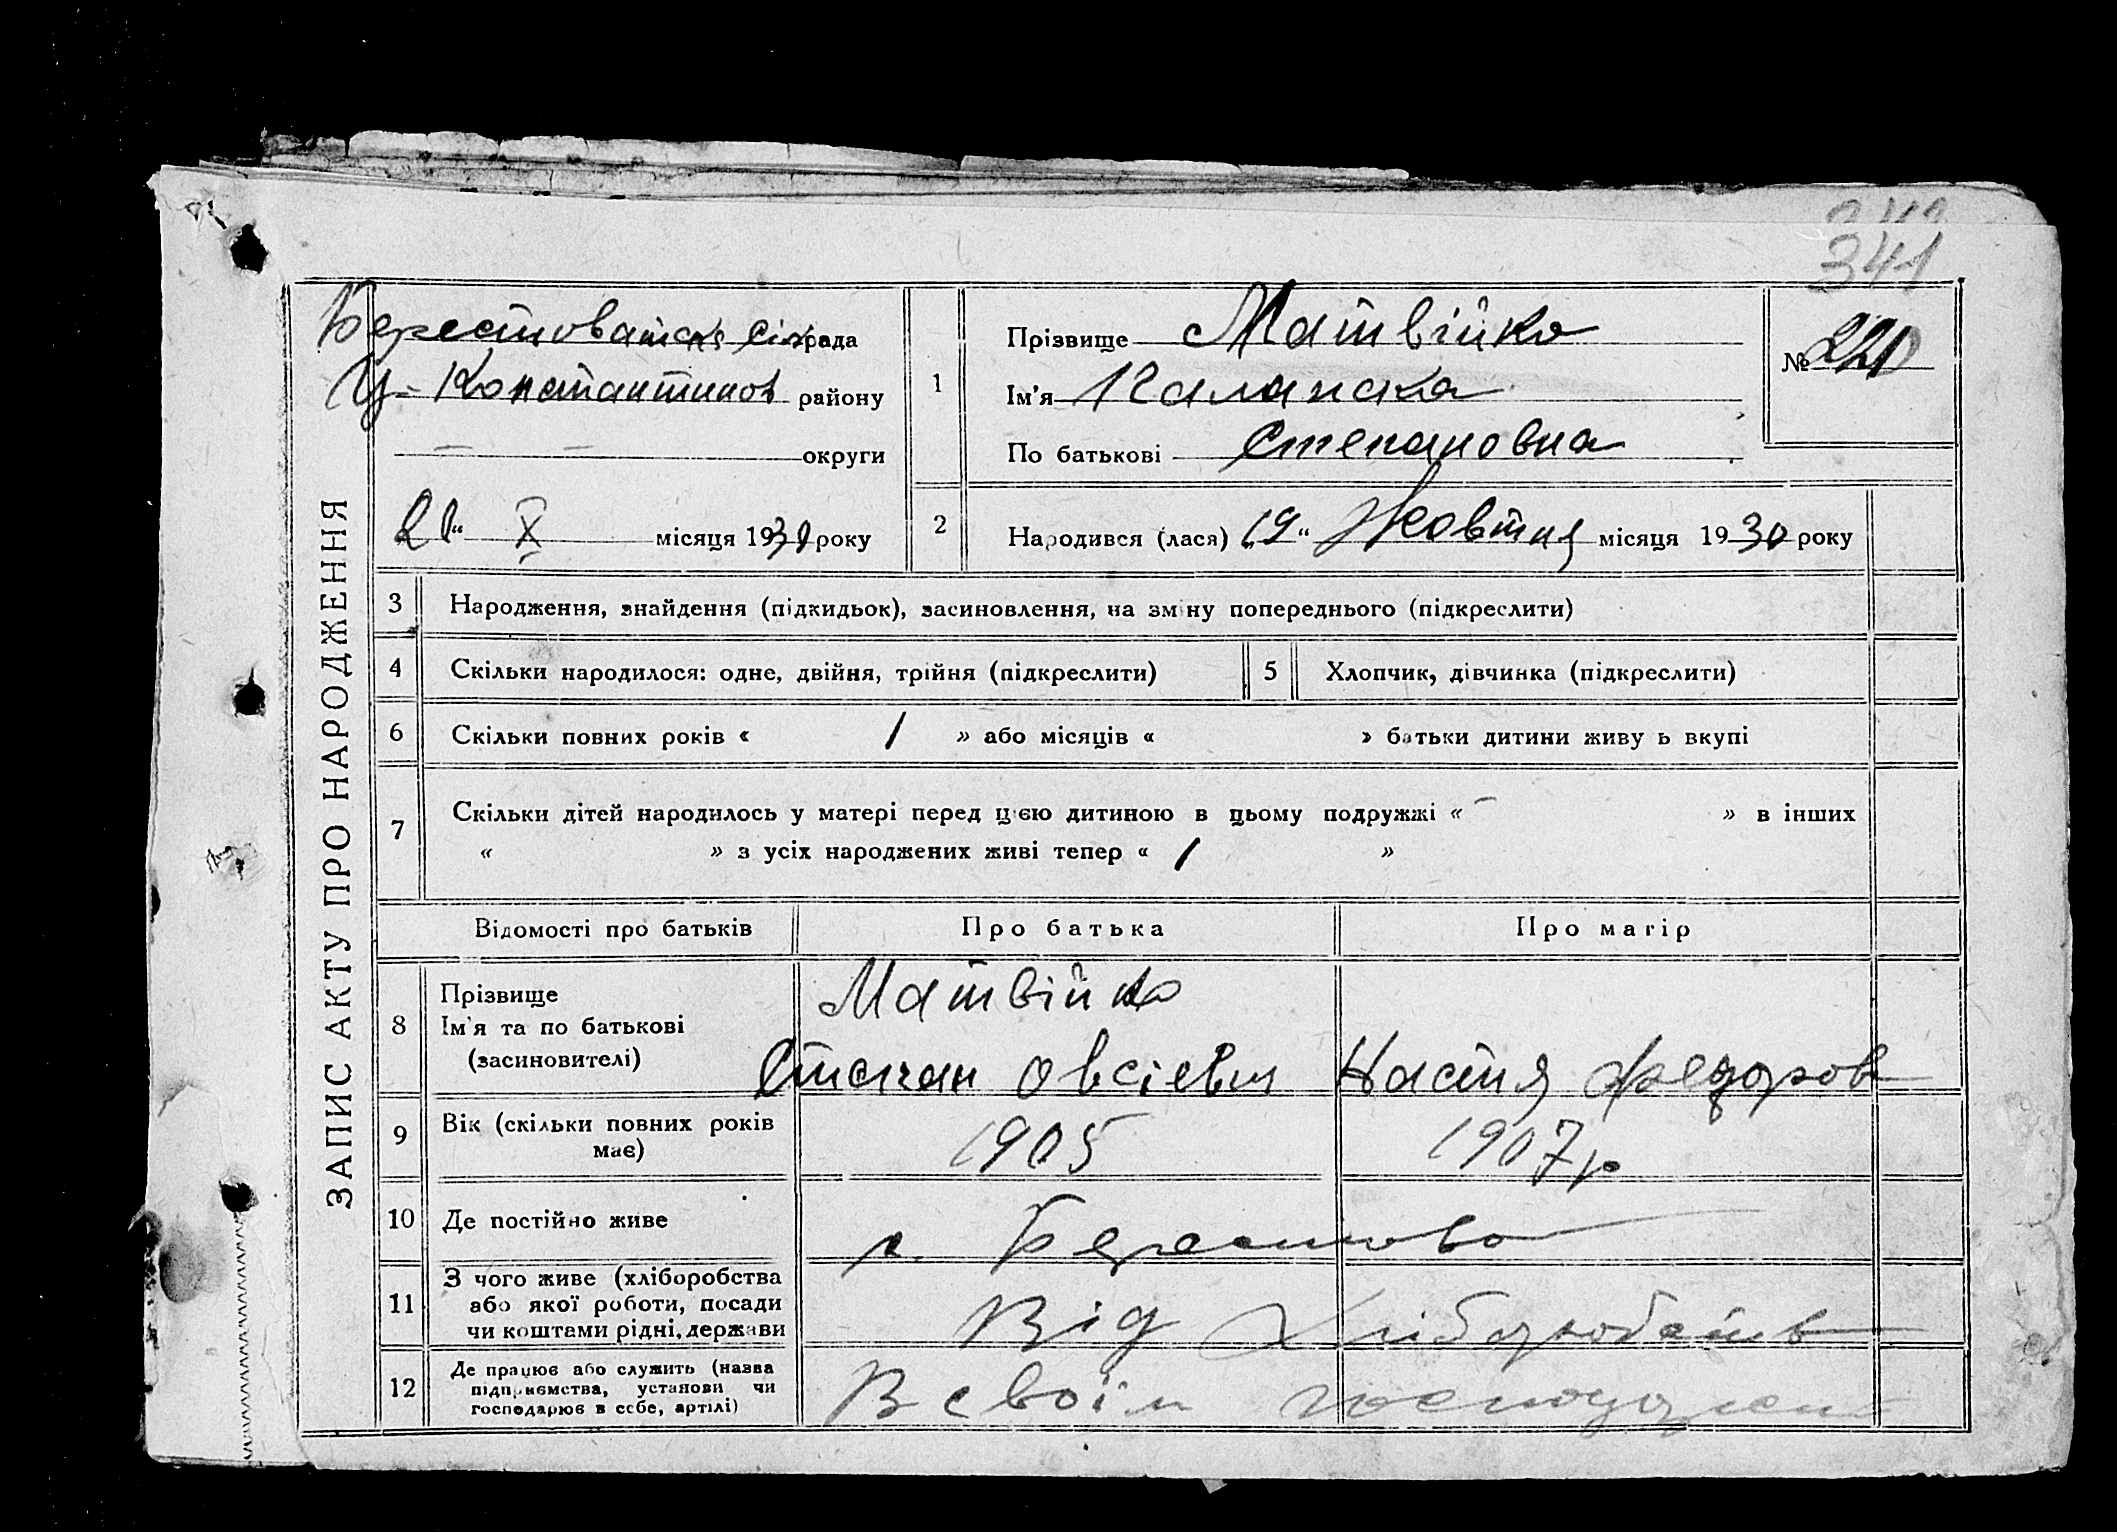 341
ЗАПИС АКТУ ПРО НАРОДЖЕННЯ
Берестоватська сільрада
Константинов району
округи
місяця 1930 року
1
Прізвище Матвійко
Ім'я
По батькові Степановна
№
2
Народився (лася) „19“ Жовтня місяця 1930 року
3 Народження, знайдення (підкидьок), засиновлення, на зміну попереднього (підкреслити)
4 Скільки народилося: одне, двійня, трійня (підкреслити) 5 Хлопчик, дівчинка (підкреслити)
6 Скільки повних років « 1 » або місяців « » батьки дитини живуть вкупі
7 Скільки дітей народилось у матері перед цією дитиною в цьому подружжі « – » в інших
« » з усіх народжених живі тепер « 1 »
Відомості про батьків Про батька Про матір
8 Прізвище Матвійко
Ім'я та по батькові
(засиновителі) Степан Овсієвич Настя Федоров
9 Вік (скільки повних років має) 1905 1907 р
10 Де постійно живе с. Берестова
11 З чого живе (хліборобства
або якої роботи, посади
чи коштами рідні, держави Від Хліборобств
12 Де працює або служить (назва
підприємства, установи чи
господарює в себе, артілі) В своїм господарст